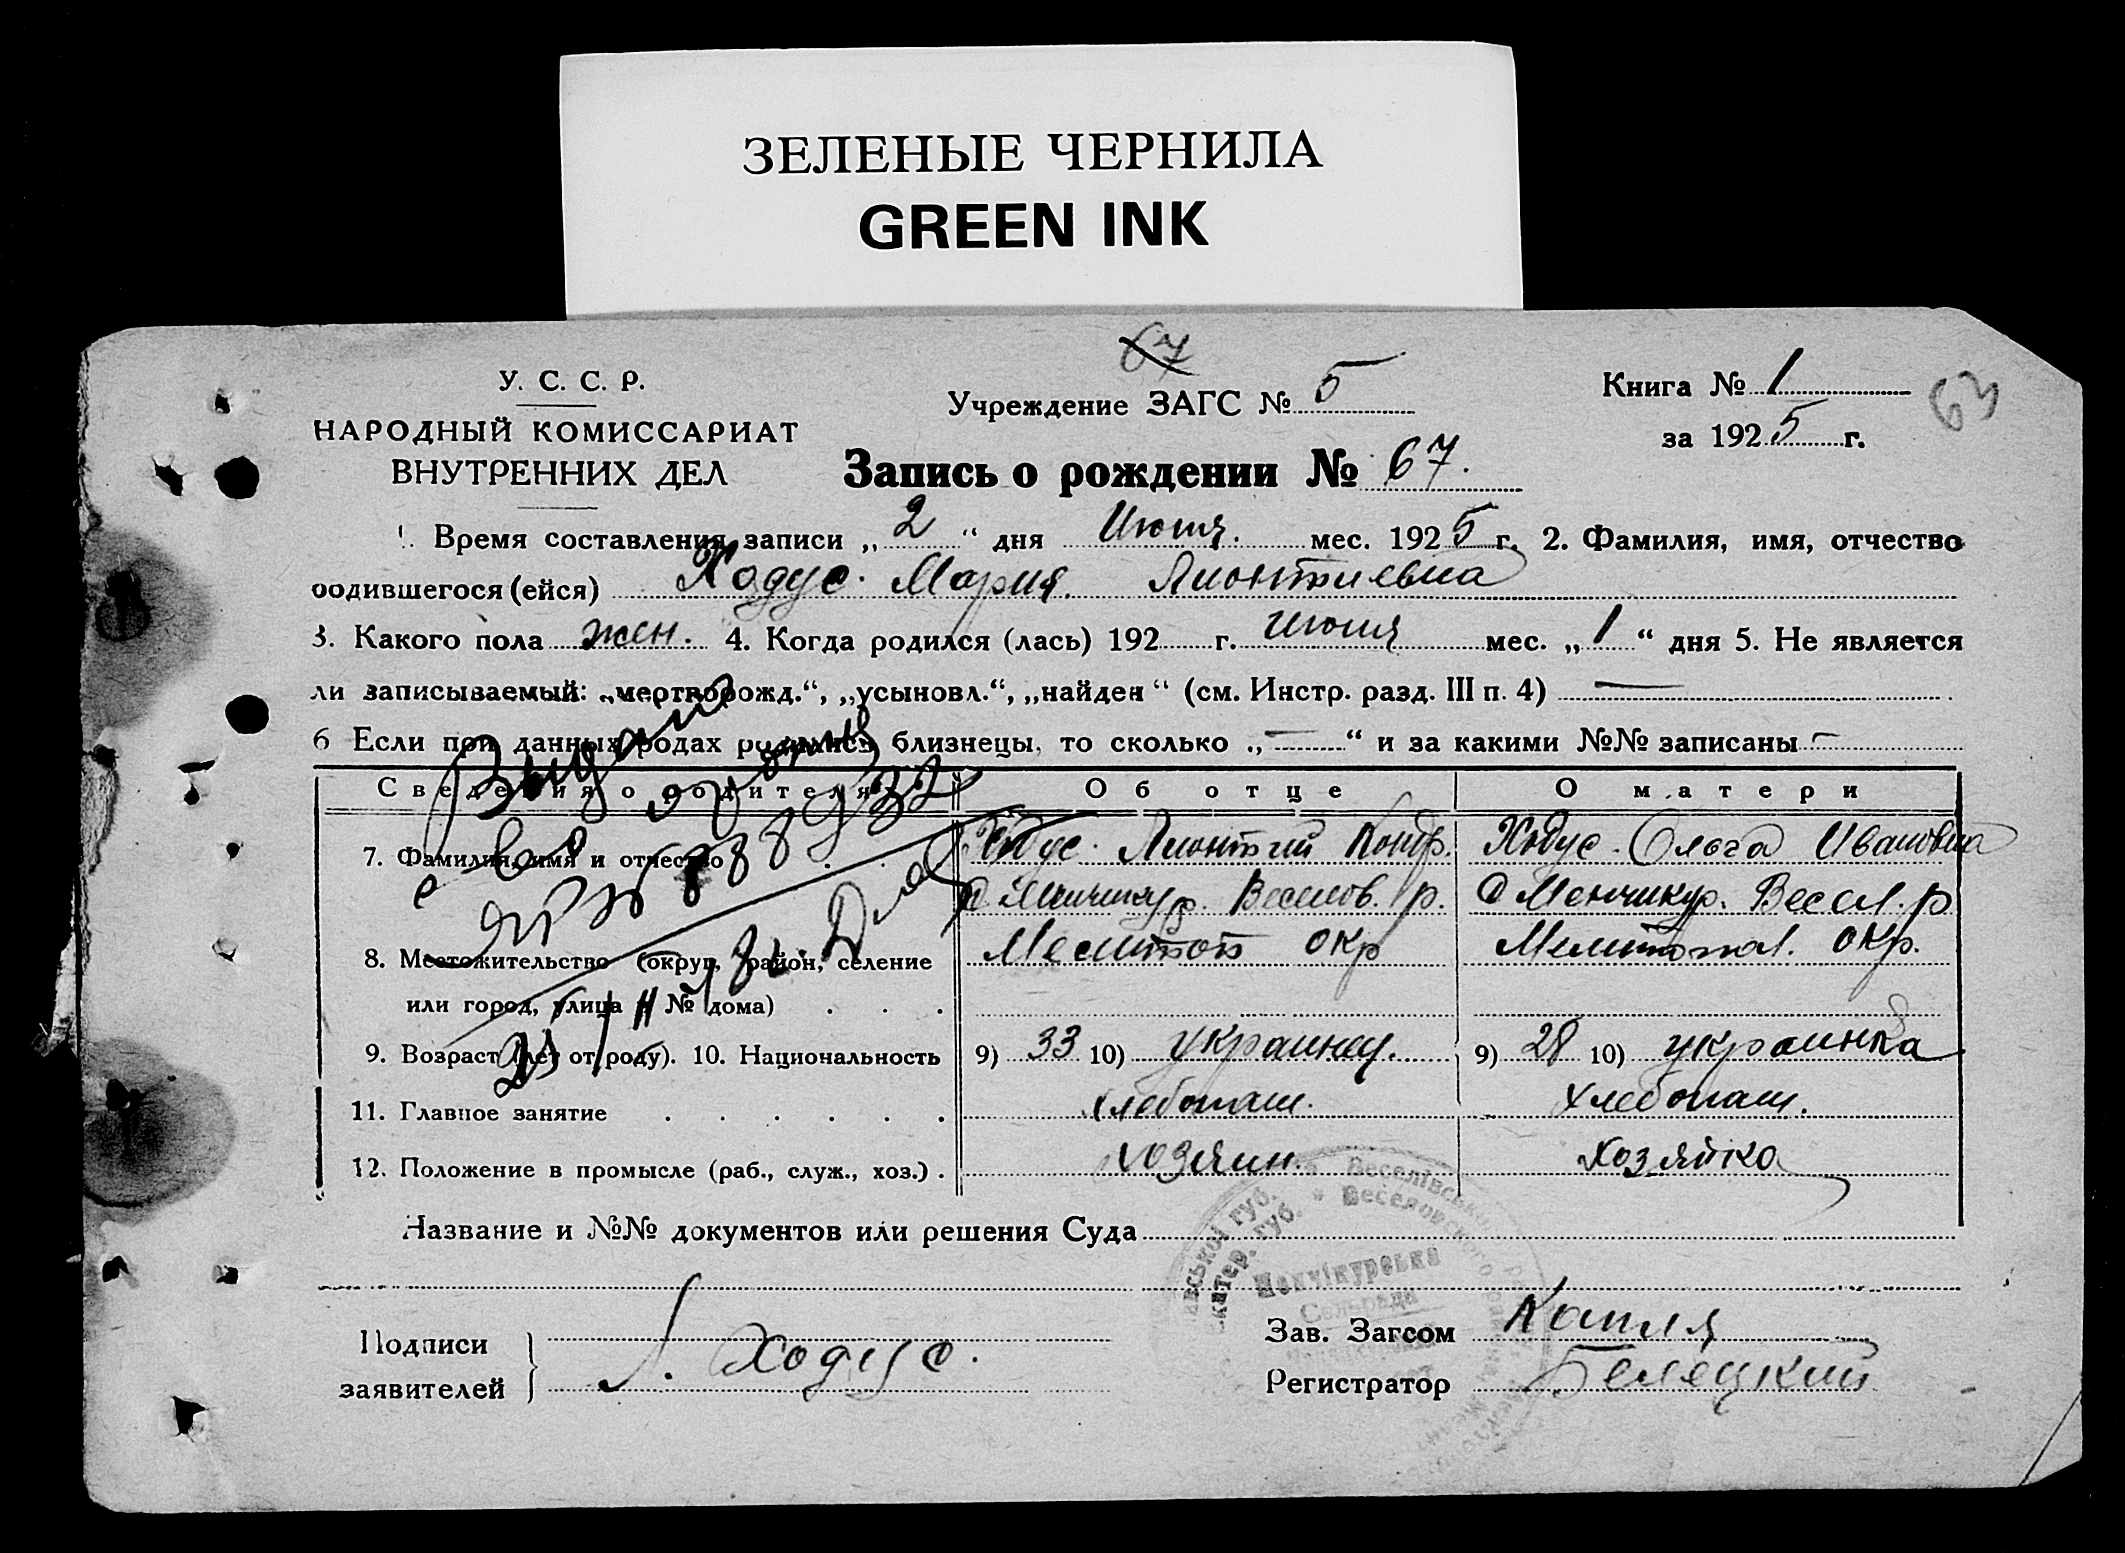 ЗЕЛЕНЫЕ ЧЕРНИЛА
GREEN INK
67
У. С. С. Р.
НАРОДНЫЙ КОМИССАРИАТ
ВНУТРЕННИХ ДЕЛ
Учреждение ЗАГС № 5
Книга № 1
за 1925 г.
63
Запись о рождении № 67.
1. Время составления записи „ 2 “ дня Июня. мес. 1925 г. 2. Фамилия, имя, отчество
родившегося (ейся) Ходус. Мария. Лионтиевна
3. Какого пола жен. 4. Когда родился (лась) 192 г. июня мес. „ 1 “ дня 5. Не является
ли записываемый: „мертворожд.“, „усыновл.“, „найден“ (см. Инстр. разд. III п. 4) —
6 Если при данных родах родились близнецы, то сколько „ — “ и за какими №№ записаны —
Сведения о родителях Об отце О матери
7. Фамилия, имя и отчество Ходус. Лионтий Кондр. Ходус. Ольга Ивановна
Выдано
с. Менчикур. Веселов. р. с Менчикур. Весел. р
8. Местожительство (округ, район, селение Мелитоп окр Мелитопол. окр.
или город, улица и № дома)
9. Возраст (лет от роду). 10. Национальность 9) 33 10) украинец. 9) 28 10) украинка
11. Главное занятие хлебопаш. хлебопаш.
12. Положение в промысле (раб., служ., хоз.) хозяин. хозяйка
Название и №№ документов или решения Суда
Веселівської
Веселовского
губ.
губ.
Менчікурська
Сельрада
Подписи
заявителей Л. Ходус.
Зав. Загсом Капля
Регистратор Белецкий